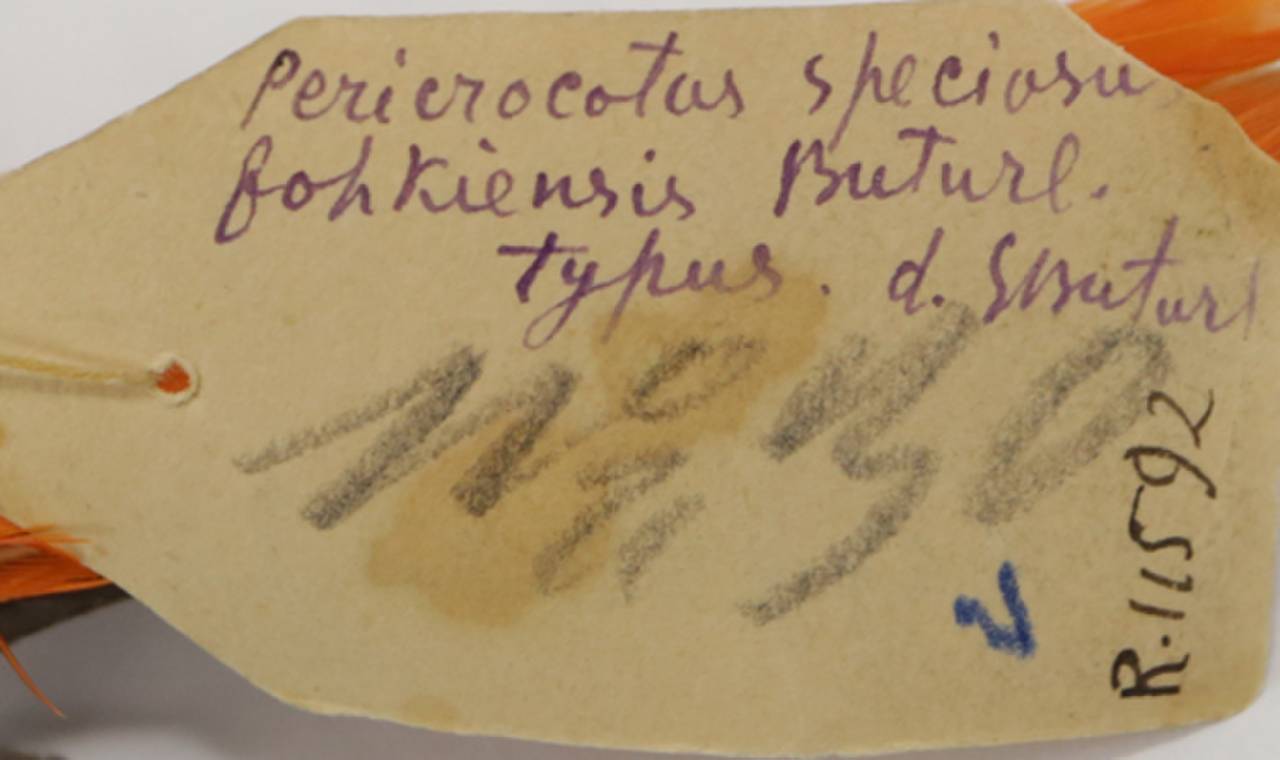 Pericrocotus speciosu
fohkiensis Buturl.
typus. d. SButurl
R.11592